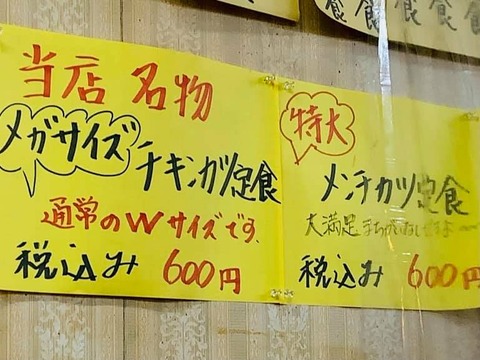 食食食食食
当店名物
メガサイズ
チキンカツ定食
通常のWサイズです。
税込み 600円
特大
メンチカツ定食
大満足まちがいなしですよ〜
税込み 600円